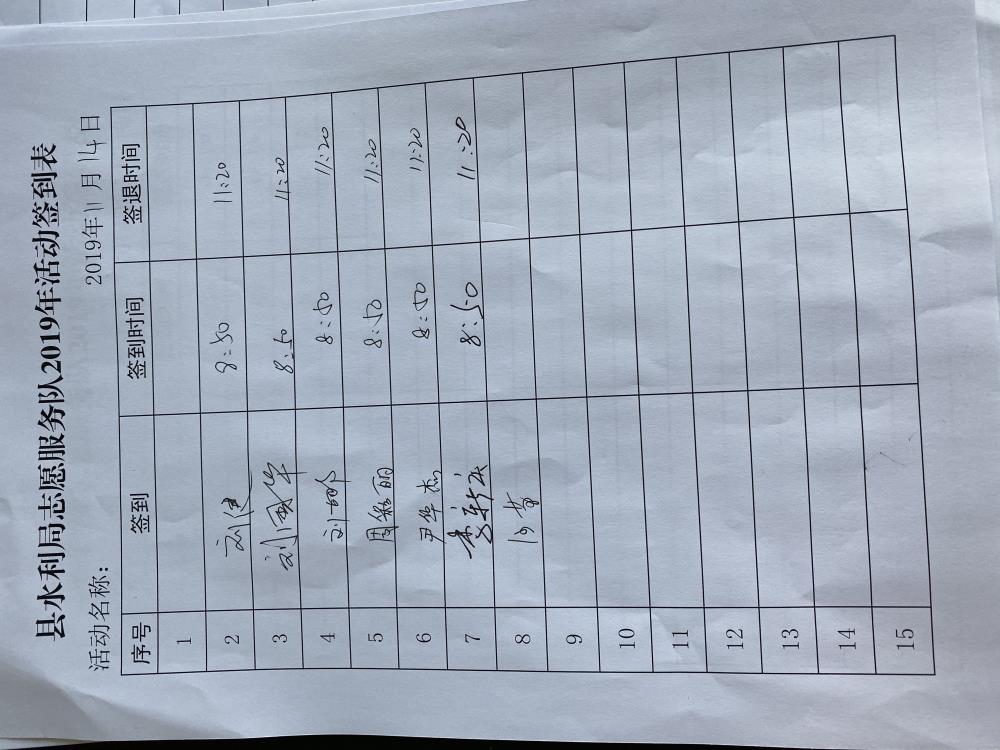 县水利局志愿服务队2019年活动签到表
活动名称： 2019年11月14日
序号 签到 签到时间 签退时间
1
2 刘健 8:50 11:20
3 刘国华 8:50 11:20
4 刘 8:50 11:20
5 周彩丽 8:50 11:20
6 尹华杰 8:50 11:20
7 李新庆 8:50 11:20
8
9
10
11
12
13
14
15